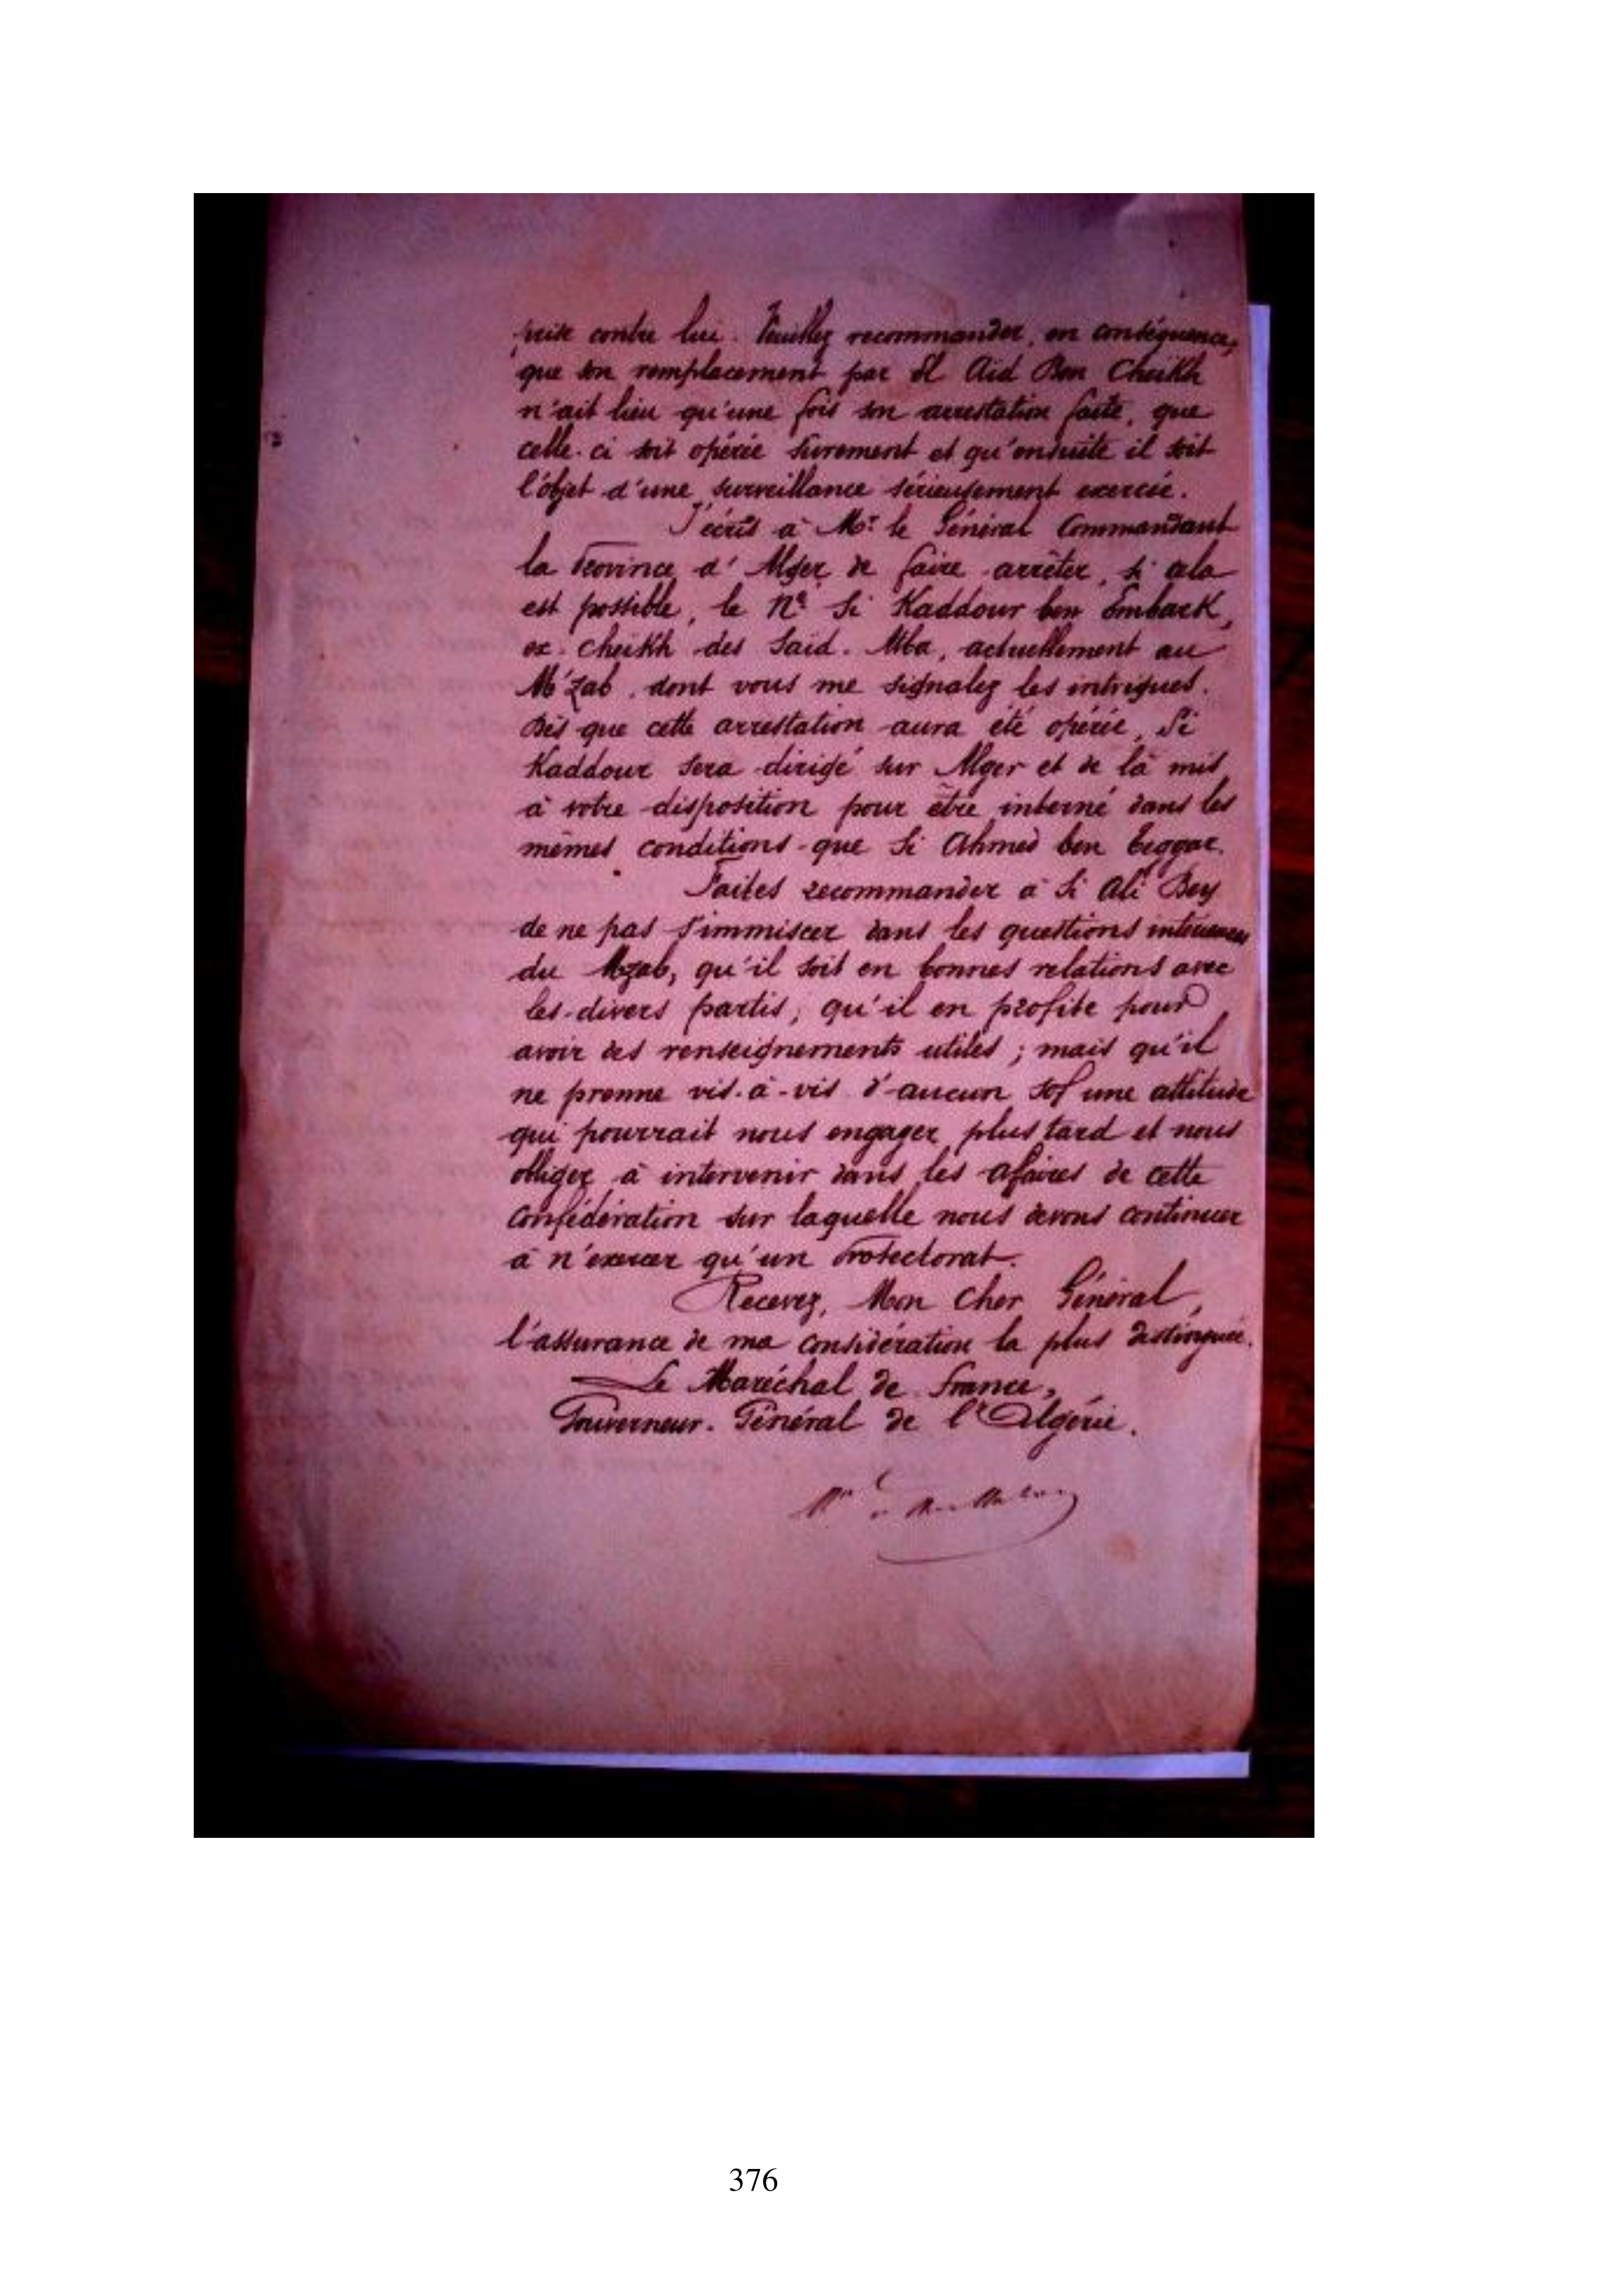 prise contre lui. Veuillez recommander, en conséquence,
que son remplacement par El Aid Ben Cheikh
n'ait lieu qu'une fois son arrestation faite, que
celle-ci soit opérée surement et qu'ensuite il soit
l'objet d'une surveillance sérieusement exercée.
J'écris à Mr. le Général Commandant
la Province d'Alger de faire arrêter, si cela
est possible, le Né Si Kaddour ben Embark,
ex-cheikh des Said-Atba, actuellement au
M'zab, dont vous me signalez les intrigues.
Dès que cette arrestation aura été opérée, Si
Kaddour sera dirigé sur Alger et de là mis
à votre disposition pour être interné dans les
mêmes conditions que Si Ahmed ben
Faites recommander à Si Ali Bey
de ne pas s'immiscer dans les questions intérieures
du Mzab, qu'il soit en bonnes relations avec
les divers partis, qu'il en profite pour
avoir des renseignements utiles ; mais qu'il
ne prenne vis-à-vis d'aucun sof une attitude
qui pourrait nous engager plus tard et nous
obliger à intervenir dans les affaires de cette
confédération sur laquelle nous devons continuer
à n'exercer qu'un Protectorat.
Recevez, Mon Cher Général,
l'assurance de ma considération la plus distinguée.
Le Maréchal de France,
Gouverneur-Général de l'Algérie.
376